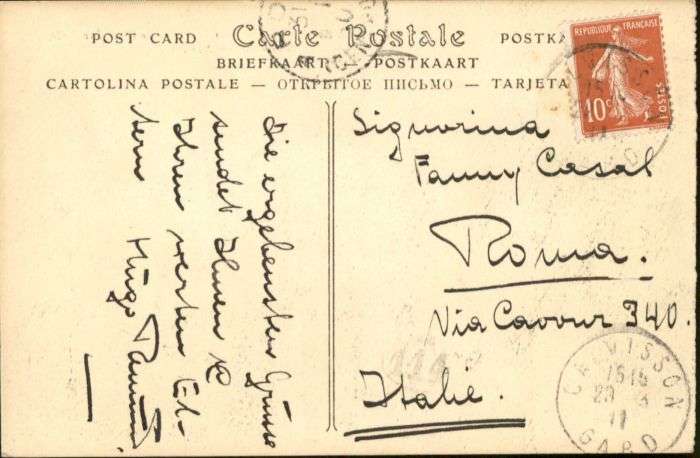 POST CARD — Carte Postale — POSTKA
BRIEFKAART — POSTKAART
CARTOLINA POSTALE — ОТКРЫТОЕ ПИСЬМО — TARJETA
REPUBLIQUE FRANÇAISE
10c
POSTES
Die ergebensten Grüsse
sendet Ihnen &
Ihren werten El-
tern Hugo
Signorina
Fanny Casal
Roma.
Via Cavour 340.
Italie.
CALVISSON
1515
GARD
11